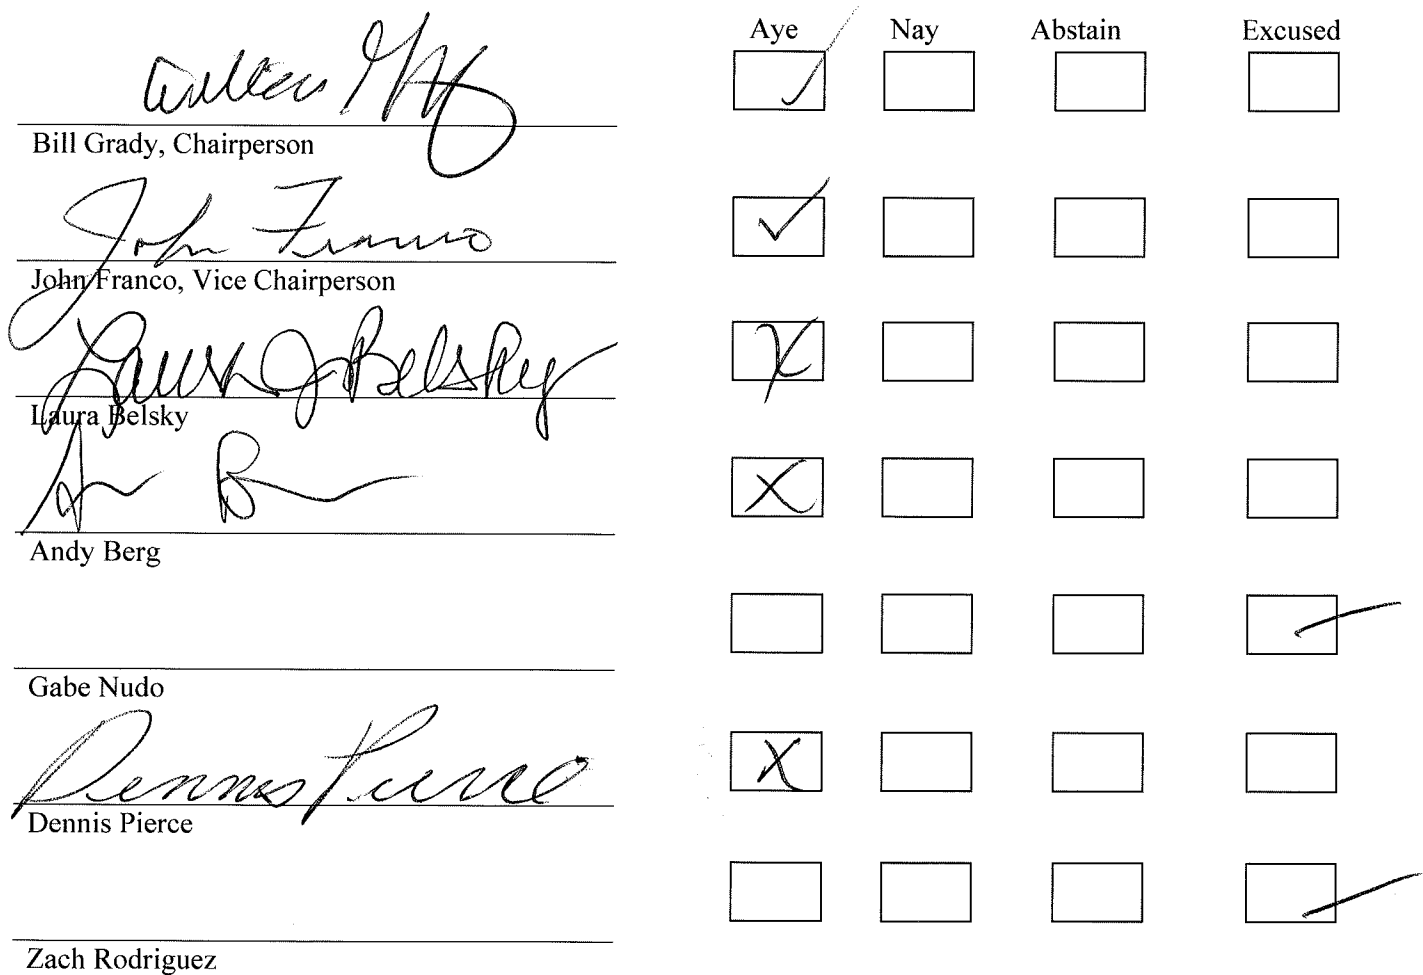 Aye Nay Abstain Excused
William Grady
Bill Grady, Chairperson
John Franco
John Franco, Vice Chairperson
Laura J Belsky
Laura Belsky
Andy Berg
Gabe Nudo
Dennis Pierce
Dennis Pierce
Zach Rodriguez